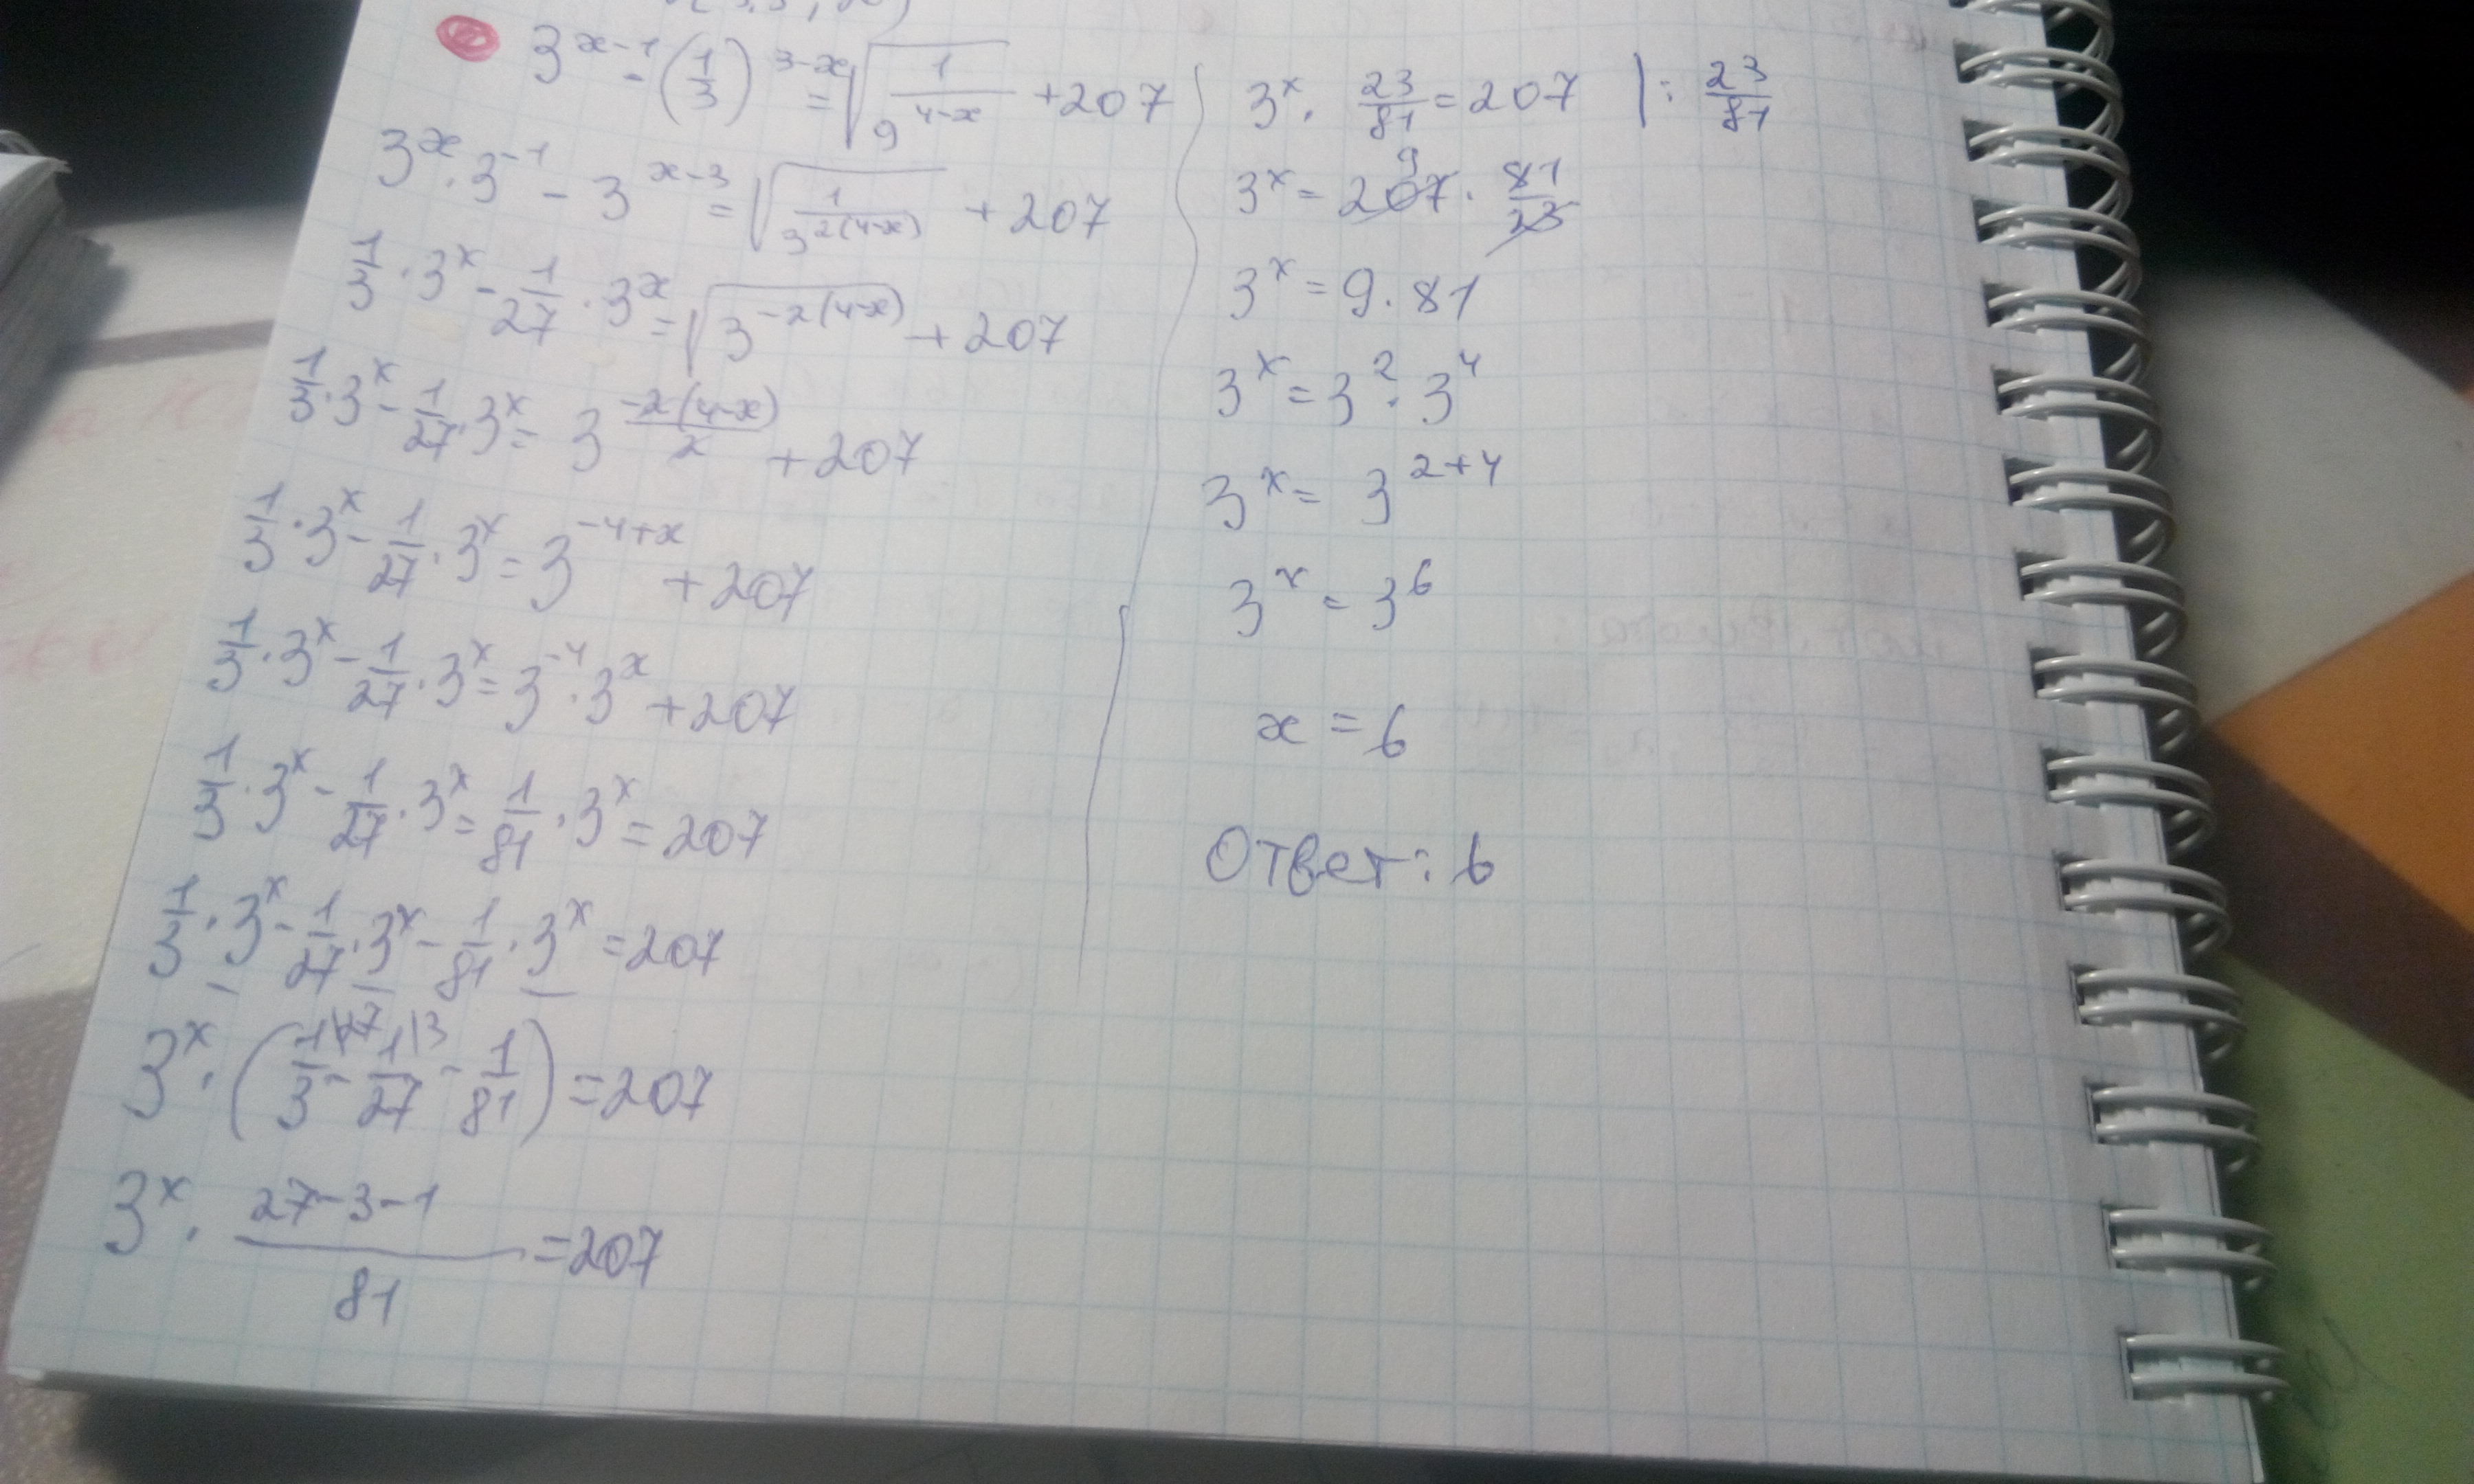 3^(x-1) - (1/3)^(3-x) = √(1/9^(4-x)) + 207
3^x · 3^(-1) - 3^(x-3) = √(1/3^(2(4-x))) + 207
1/3 · 3^x - 1/27 · 3^x = √(3^(-2(4-x))) + 207
1/3 · 3^x - 1/27 · 3^x = 3^(-2(4-x)/2) + 207
1/3 · 3^x - 1/27 · 3^x = 3^(-4+x) + 207
1/3 · 3^x - 1/27 · 3^x = 3^(-4) · 3^x + 207
1/3 · 3^x - 1/27 · 3^x = 1/81 · 3^x = 207
1/3 · 3^x - 1/27 · 3^x - 1/81 · 3^x = 207
3^x · (1/3 |27 - 1/27 |3 - 1/81) = 207
3^x · (27-3-1)/81 = 207
3^x · 23/81 = 207 | : 23/81
3^x = 207 9 · 81/23
3^x = 9 · 81
3^x = 3^2 · 3^4
3^x = 3^(2+4)
3^x = 3^6
x = 6
Ответ: 6